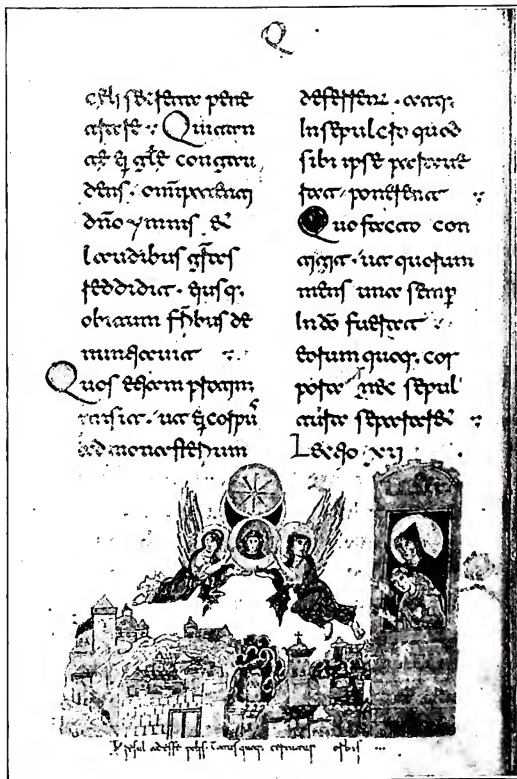 Q
celi secreta pene
trare :· Qui tan
te ei glē congau
dens · omīpotenti
dño ymnis &
laudibus grās
reddidit · eiusq;
obitum frībus de
nuntiavit :·
Quos etiam protin;
misit · ut ei corpus
ad monasterium
deferrent · atq;
In sepulcro quod
sibi ipse parave
rat · ponerent :·
Quo facto con
tigit · ut quorum
mens una semp
In dō fuerat
eorum quoq; cor
pora nec sepul
tura separaret :·
Lectio xii
cernitur orbis